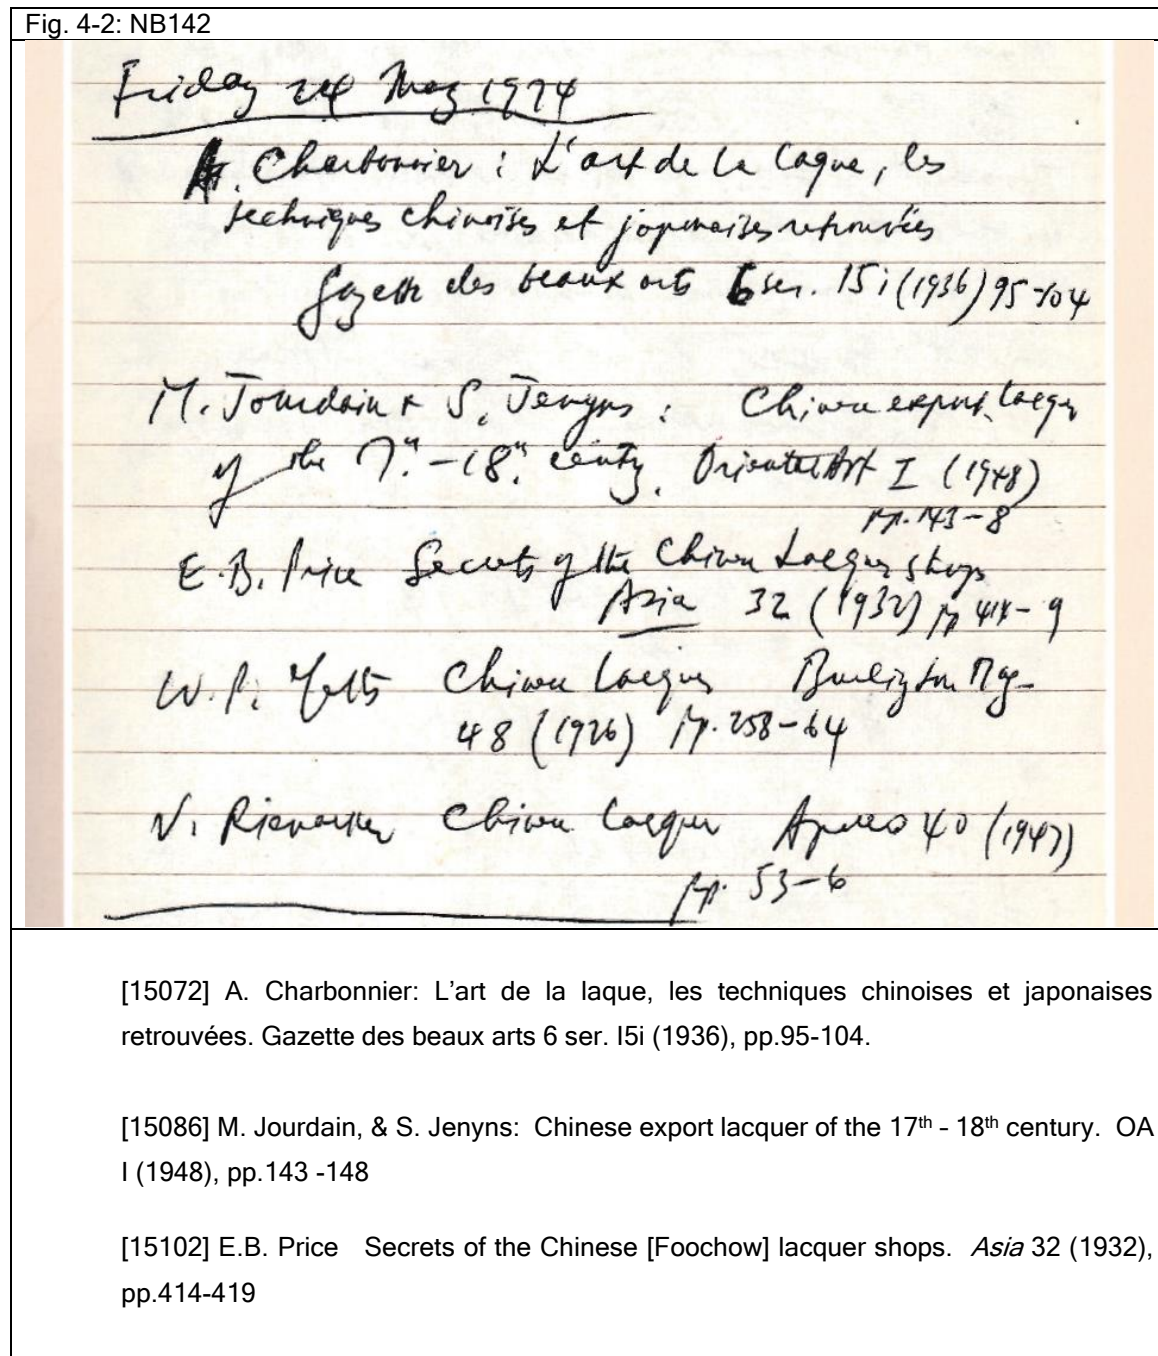 Fig. 4-2: NB142
Friday 24 May 1974
A. Charbonnier : L'art de la laque, les
techniques chinoises et japonaises retrouvées
Gazette des beaux arts 6 ser. 15 i (1936) 95-104
M. Jourdain & S. Jenyns : Chinese export lacquer
of the 17th - 18th century. Oriental Art I (1948)
pp. 143-8
E.B. Price Secrets of the Chinese Lacquer shops
Asia 32 (1932) pp 414-9
W.P. Yetts Chinese lacquer Burlington Mag-
48 (1926) pp. 258-64
N. Chinese lacquer Apollo 40 (1947)
pp. 53-6
[15072] A. Charbonnier: L'art de la laque, les techniques chinoises et japonaises
retrouvées. Gazette des beaux arts 6 ser. I5i (1936), pp.95-104.
[15086] M. Jourdain, & S. Jenyns: Chinese export lacquer of the 17th - 18th century. OA
I (1948), pp.143 -148
[15102] E.B. Price Secrets of the Chinese [Foochow] lacquer shops. Asia 32 (1932),
pp.414-419